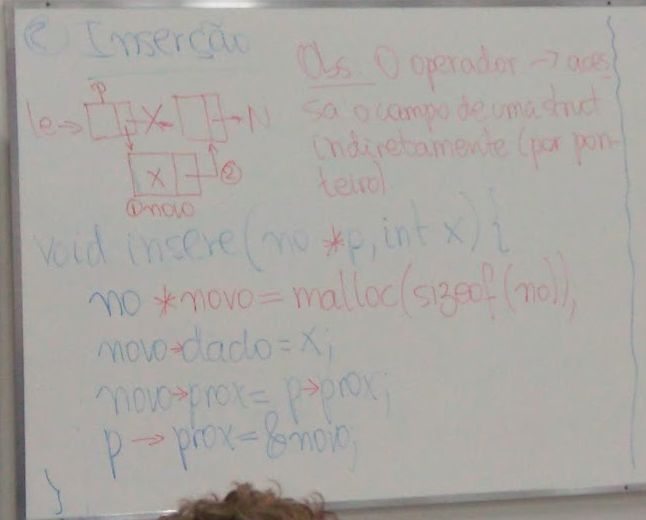 ② Inserção
Obs. O operador -> aces
sa o campo de uma struct
indiretamente (por pon-
teiro)
p
le→ X → N
X ②
①novo
void insere(no *p, int x) {
no *novo = malloc(sizeof(no));
novo->dado = x;
novo->prox = p->prox;
p -> prox = &novo;
}